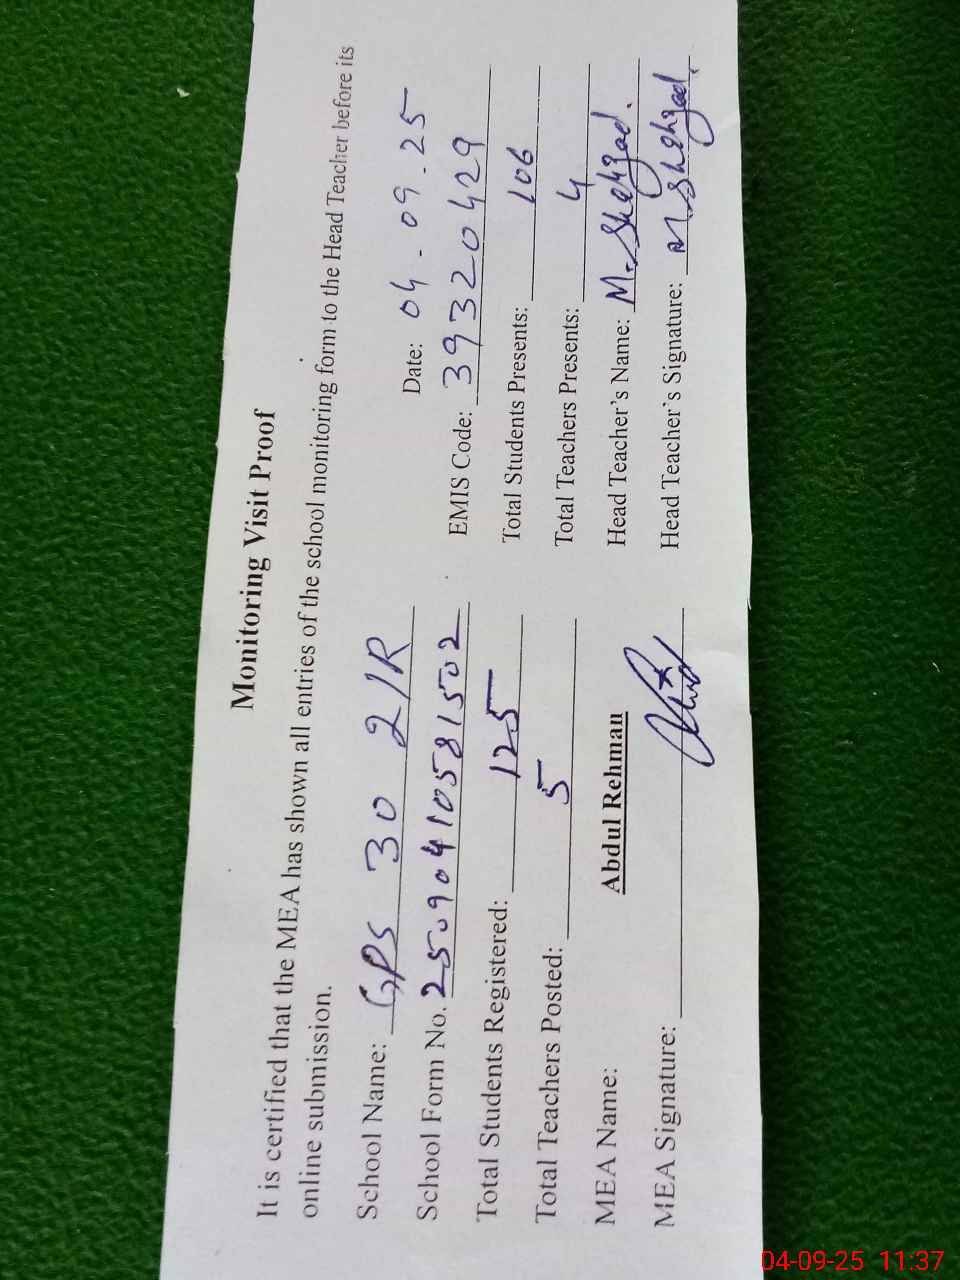 Monitoring Visit Proof
It is certified that the MEA has shown all entries of the school monitoring form to the Head Teacher before its
online submission.
Date: 04-09-25
School Name: GPS 30 2/R
EMIS Code: 39320429
School Form No. 25090410581502
Total Students Presents: 106
Total Students Registered: 125
Total Teachers Presents: 4
Total Teachers Posted: 5
Head Teacher's Name: M. Shehzad.
MEA Name: Abdul Rehman
Head Teacher's Signature: M. Shehzad.
MEA Signature:
04-09-25 11:37